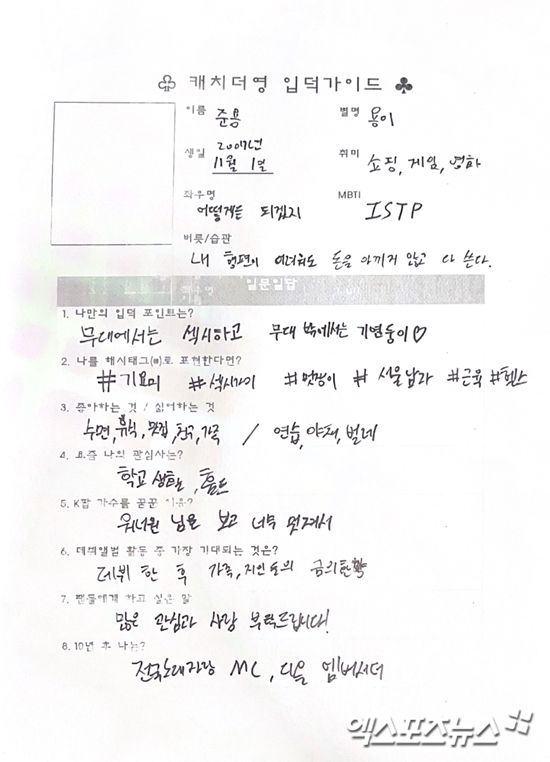 ♧ 캐치더영 입덕가이드 ♣
이름 준용
별명 용이
생일 2007년
11월 1일
취미 쇼핑, 게임, 영화
좌우명
어떻게든 되겠지
MBTI
ISTP
버릇/습관
내 형편이 어려워도 돈을 아끼지 않고 다 쓴다.
일문일답
1. 나만의 입덕 포인트는?
무대에서는 섹시하고 무대 밖에서는 기염둥이♡
2. 나를 해시태그(#)로 표현한다면?
#기요미 #섹시가이 #멋쟁이 #서울남자 #근육 #헬스
3. 좋아하는 것 / 싫어하는 것
수면, 휴식, 맛집, 친구, 가족 / 연습, 야채, 벌레
4. 요즘 나의 관심사는?
학교생활,
5. K팝 가수를 꿈꾼 이유?
워너원 님을 보고 너무 멋져서
6. 데뷔앨범 활동 중 가장 기대되는 것은?
데뷔 한 후 가족, 지인들의 금의환향
7. 팬들에게 하고 싶은 말
많은 관심과 사랑 부탁드립니다!
8. 10년 후 나는?
전국노래자랑 MC, 디올 엠버서더
엑스포츠뉴스